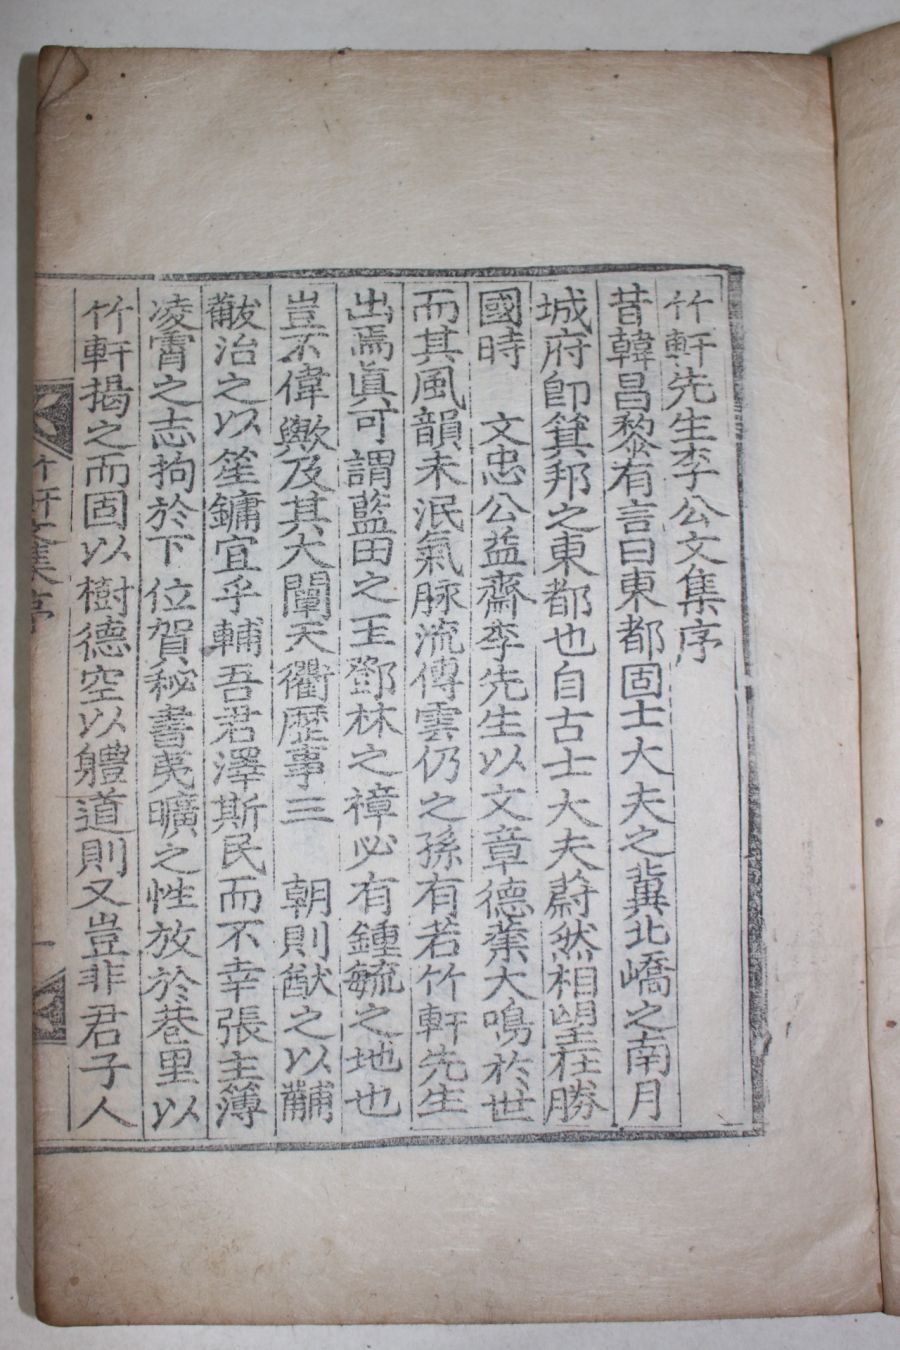 竹軒先生李公文集序
昔韓昌黎有言曰東都固士大夫之冀北嶠之南月
城府卽箕邦之東都也自古士大夫蔚然相望在勝
國時 文忠公益齋李先生以文章德業大鳴於世
而其風韻未泯氣脉流傳雲仍之孫有若竹軒先生
出焉眞可謂藍田之玉鄧林之樟必有鍾毓之地也
豈不偉歟及其大闡天衢歷事三 朝則猷之以黼
黻治之以笙鏞宜乎輔吾君澤斯民而不幸張主簿
凌霄之志拘於下位賀秘書夷曠之性放於巷里以
竹軒揭之而固以樹德空以軆道則又豈非君子人
竹軒文集序 一